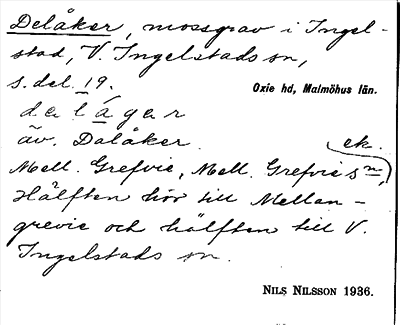 Delåker, mossgrav i Ingel-
stad, V. Ingelstads sn,
s. del. 19.
Oxie hd, Malmöhus län.
dalágar
äv. Dalåker. ek.
Mell. Grefvie, Mell. Grefvie sn,
Hälften hör till Mellan-
grevie och hälften till V.
Ingelstads sn.
NILS NILSSON 1936.